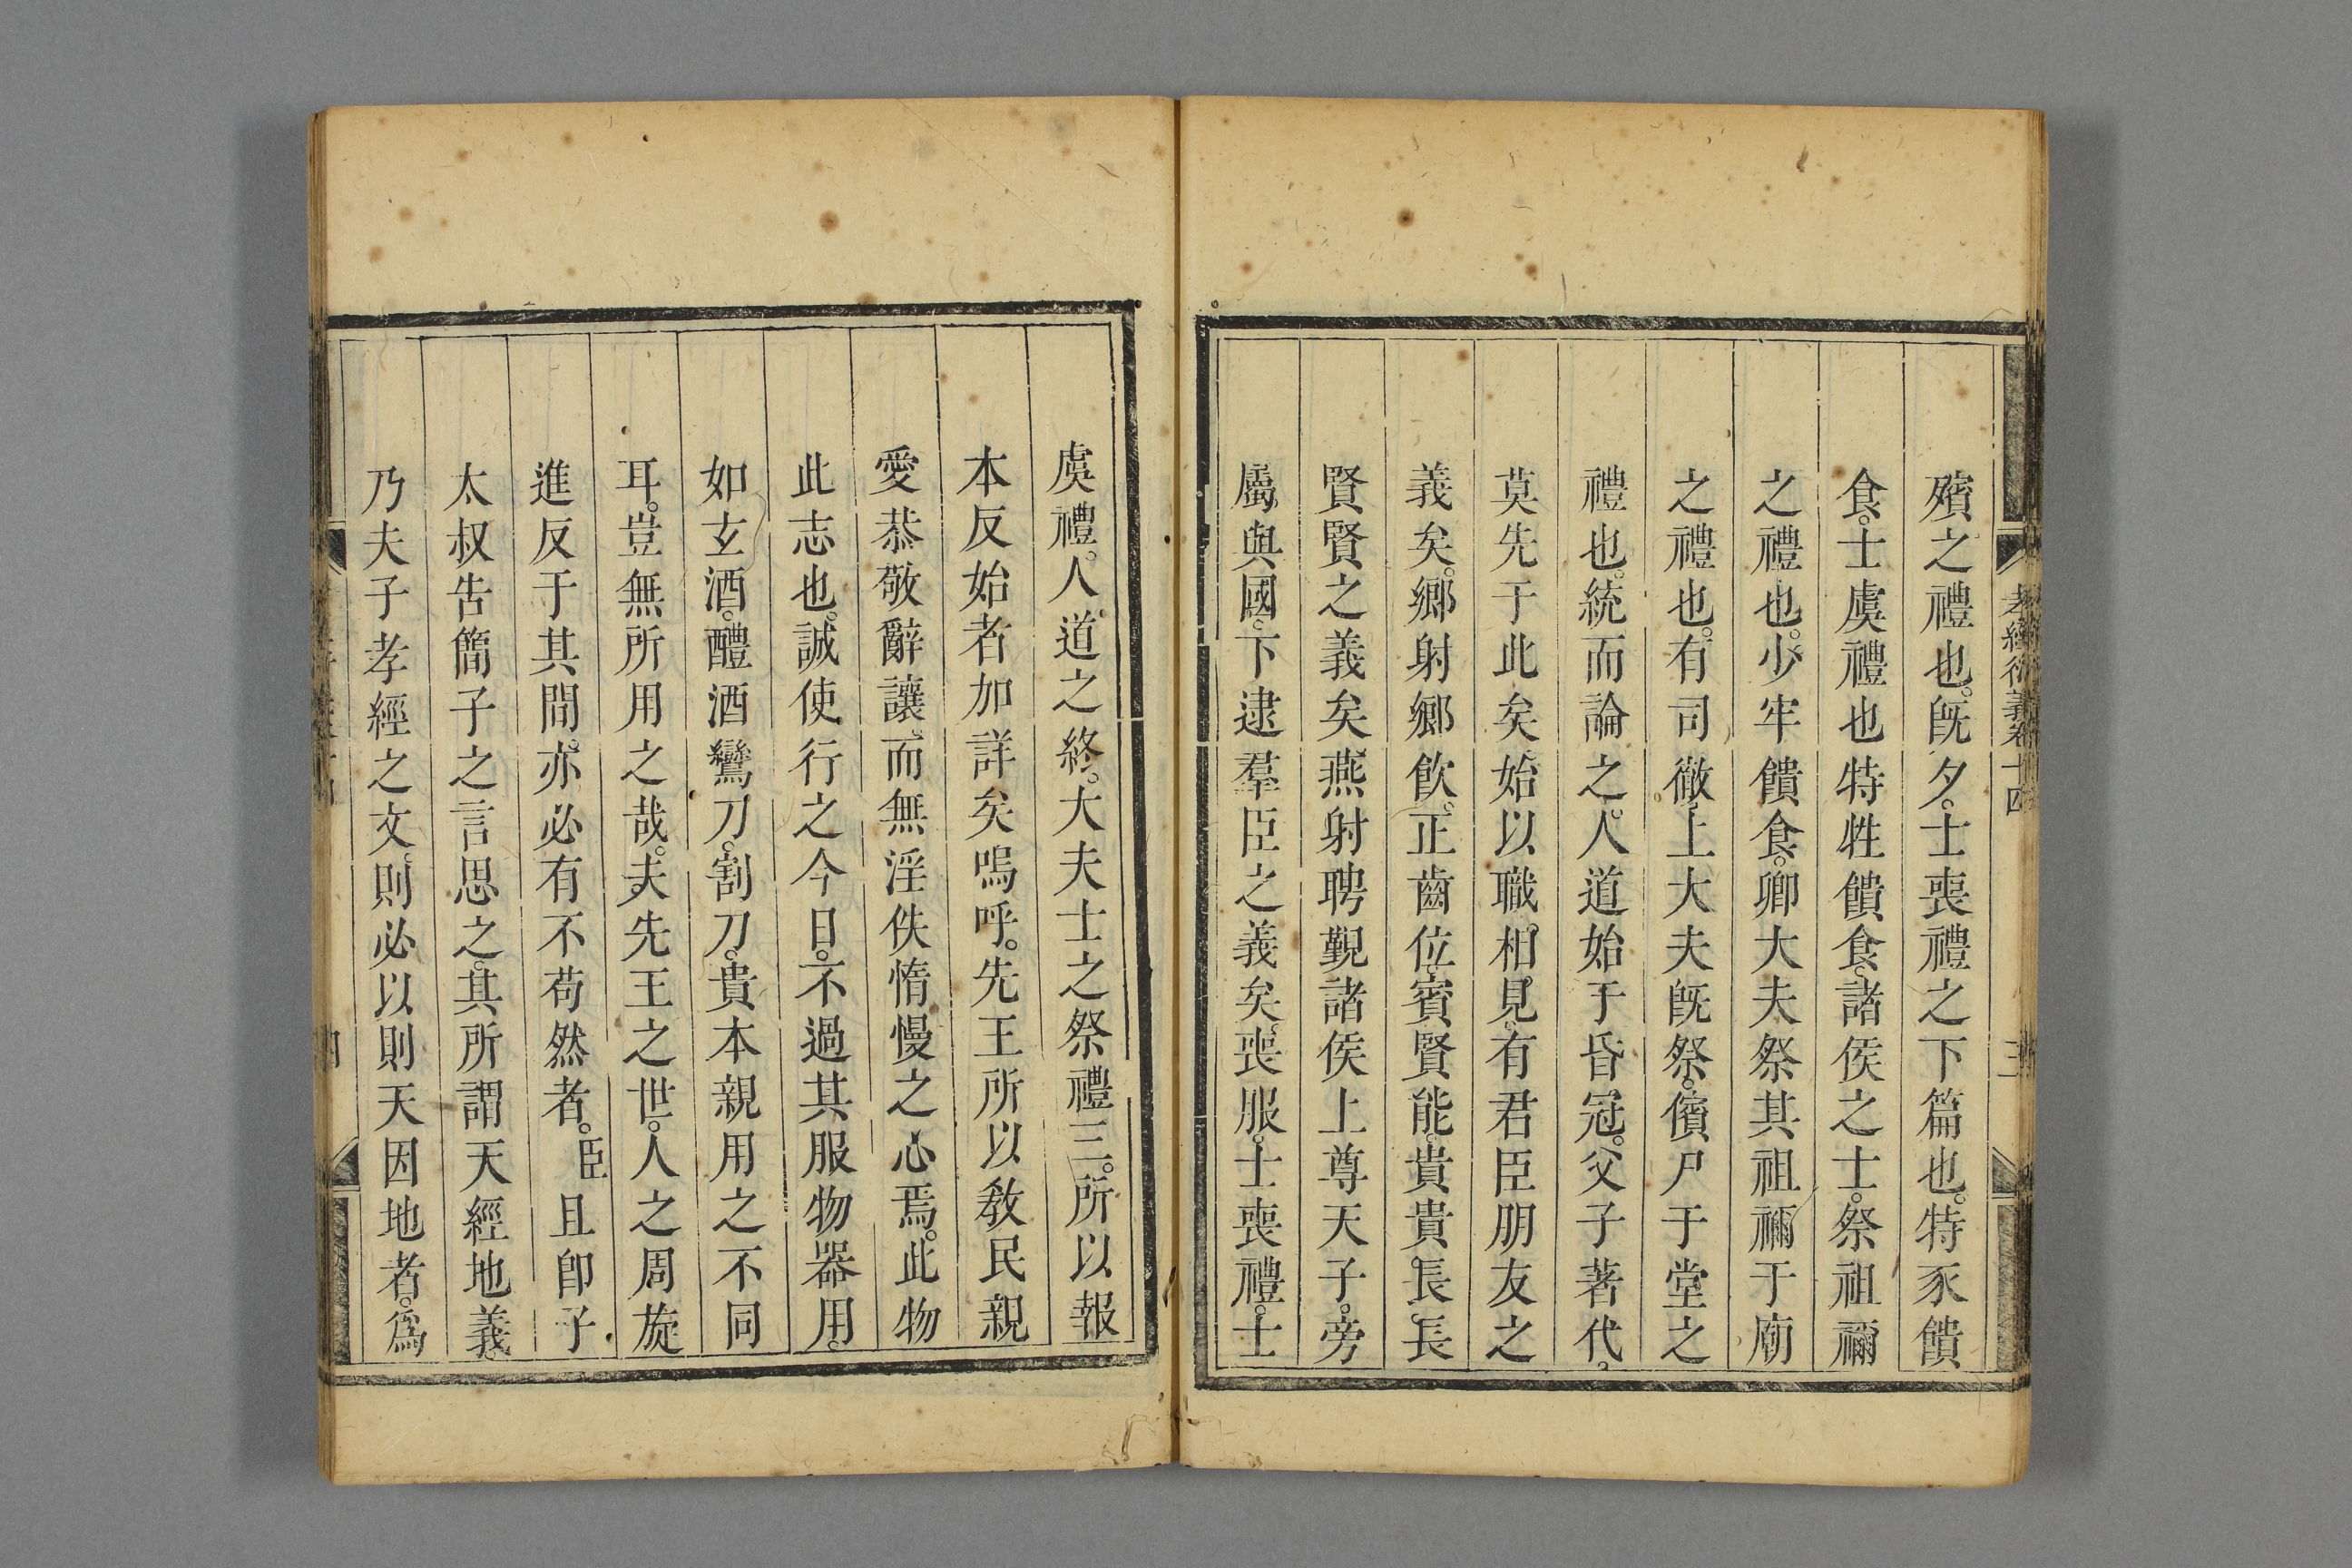 孝經衍義卷十四
三
殯之禮也。既夕。士喪禮之下篇也。特豕饋
食。士虞禮也特牲饋食。諸侯之士。祭祖禰
之禮也。少牢饋食。卿大夫祭其祖禰于廟
之禮也。有司徹。上大夫既祭。儐尸于堂之
禮也。統而論之。人道始于昏冠。父子著代。
莫先于此矣始以職。相。見。有君臣朋友之
義矣。鄉射鄉飲。正齒位。賓賢能。貴貴。長。長
賢賢之義矣燕射聘覲諸侯上尊天子。旁
屬與國。下逮羣臣之義矣。喪服。士喪禮。士
虞禮。人道之終。大夫士之祭禮三。所以報
本反始者加詳矣嗚呼。先王所以教民親
愛恭敬辭讓。而無淫佚惰慢之心焉。此物
此志也。誠使行之今日。不過其服物器用。
如玄酒。醴酒鸞刀。割刀。貴本親用之不同
耳。豈無所用之哉。夫先王之世。人之周旋
進反于其間。亦必有不苟然者。臣且卽子
太叔告簡子之言思之。其所謂天經地義。
乃夫子孝經之文。則必以則天因地者。爲